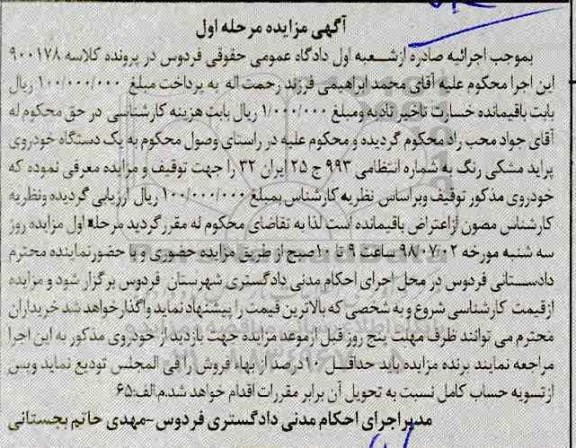 آگهی مزایده مرحله اول
بموجب اجرائیه صادره ازشعبه اول دادگاه عمومی حقوقی فردوس در پرونده کلاسه ۹۰۰۱۷۸
این اجرا محکوم علیه آقای محمد ابراهیمی فرزند رحمت اله به پرداخت مبلغ ۱۰۰/۰۰۰/۰۰۰ ریال
بابت باقیمانده خسارت تاخیر تادیه ومبلغ ۱/۰۰۰/۰۰۰ ریال بابت هزینه کارشناسی در حق محکوم له
آقای جواد محب راد محکوم گردیده و محکوم علیه در راستای وصول محکوم به یک دستگاه خودروی
پراید مشکی رنگ به شماره انتظامی ۹۹۳ ج ۲۵ ایران ۳۲ را جهت توقیف و مزایده معرفی نموده که
خودروی مذکور توقیف وبراساس نظریه کارشناس بمبلغ ۱۰۰/۰۰۰/۰۰۰ ریال ارزیابی گردیده ونظریه
کارشناس مصون ازاعتراض باقیمانده است لذا به تقاضای محکوم له مقرر گردید مرحله اول مزایده روز
سه شنبه مورخه ۹۸/۰۷/۰۲ ساعت ۹ تا ۱۰صبح از طریق مزایده حضوری و با حضورنماینده محترم
دادستانی فردوس در محل اجرای احکام مدنی دادگستری شهرستان فردوس برگزار شود و مزایده
ازقیمت کارشناسی شروع و به شخصی که بالاترین قیمت را پیشنهاد نماید واگذار خواهد شد خریداران
محترم می توانند ظرف مهلت پنج روز قبل ازموعد مزایده جهت بازدید از خودروی مذکور به این اجرا
مراجعه نمایند برنده مزایده باید حداقل ۱۰درصد از بهاء فروش را فی المجلس تودیع نماید وپس
ازتسویه حساب کامل نسبت به تحویل آن برابر مقررات اقدام خواهد شد.م.الف:۶۵
مدیراجرای احکام مدنی دادگستری فردوس-مهدی حاتم بجستانی